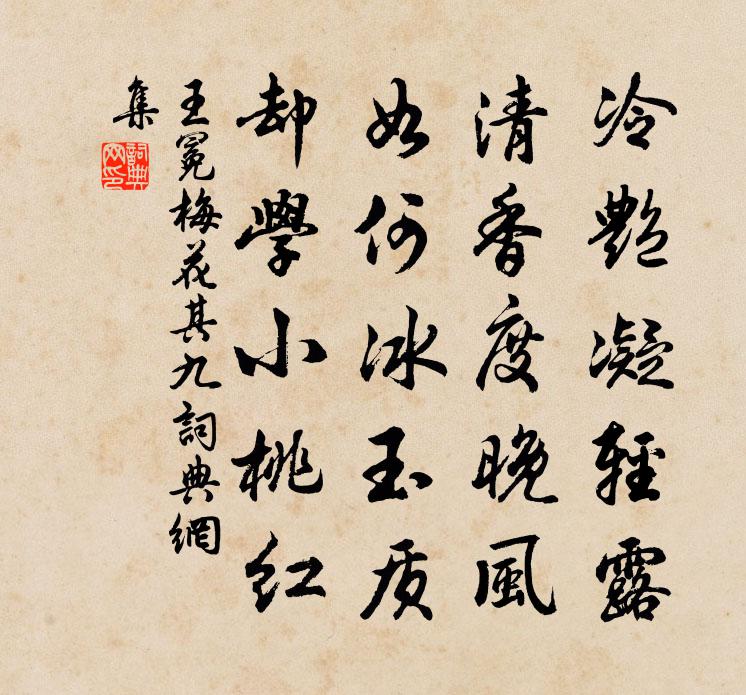 冷艷凝輕露
清香度晚風
如何冰玉质
却學小桃紅
王冕梅花其九詞典網
集
詞典
网印